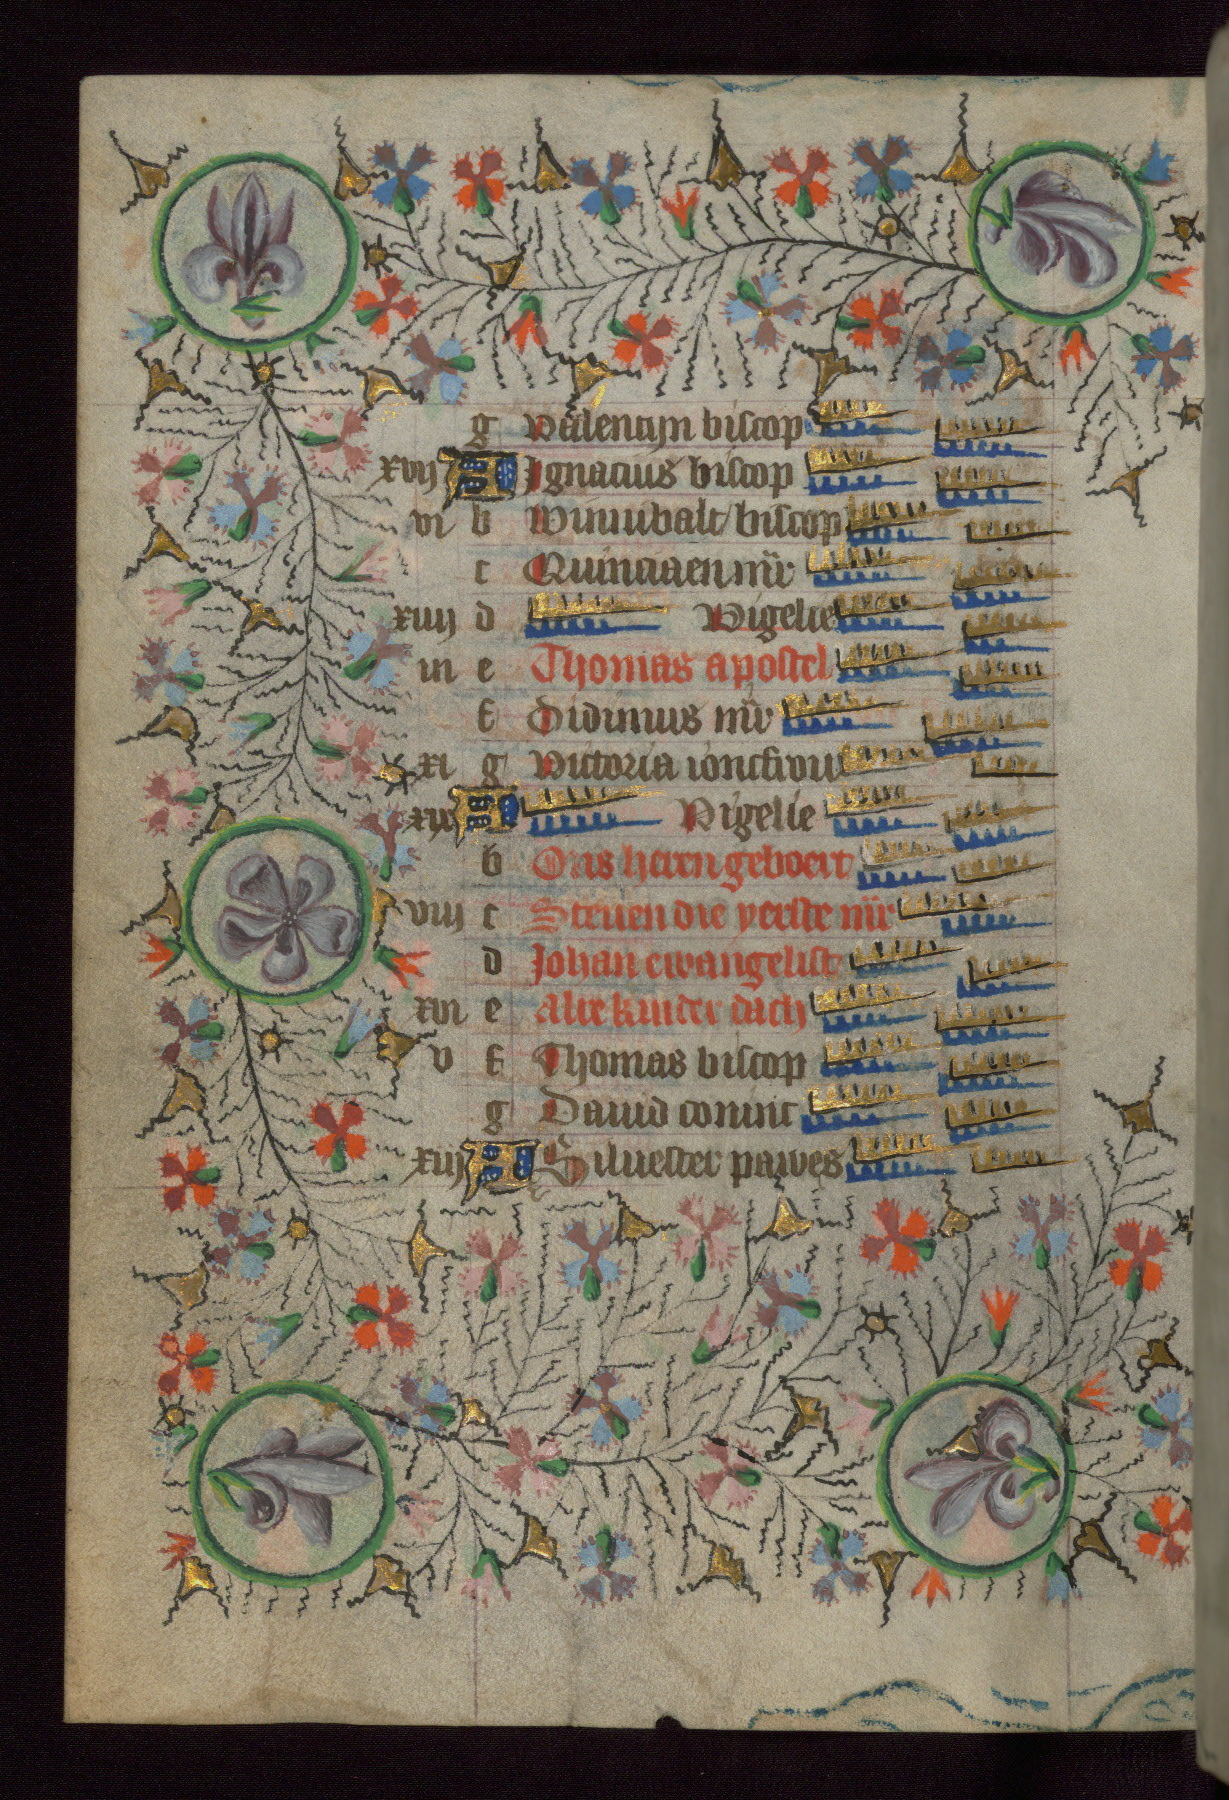 g Valentijn biscop
xvij A Ignacius biscop
vi b Wunibalt biscop
c Quinciaen mr
xiiij d Vigelie
iii e Thomas apostel
f Didimus mr
xi g Victoria ioncfrou
xix A Vigelie
b Ons heren geboert
viij c Steuen die yerste mr
d Johan ewangelist
xvi e Alre kinder dach
v f Thomas biscop
g Dauid coninc
xiij A Siluester pawes